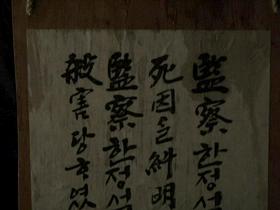 監察한정
死因을糾明
監察한정
害당하였